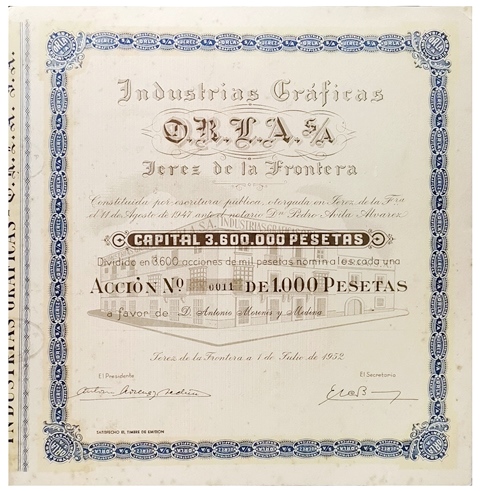 Industrias Gráficas
O.R.L.A. S/A
Jerez de la Frontera
Constituida por escritura pública, otorgada en Jerez de la Fra
el 11 de Agosto de 1947 ante el notario Dn Pedro Avila Alvarez
CAPITAL 3.600.000 PESETAS
Dividido en 3.600 acciones de mil pesetas nominales cada una
ACCIÓN Nº 0011 DE 1.000 PESETAS
a favor de D. Antonio Moreno y Medina
Jerez de la Frontera a 1 de Julio de 1952
El Presidente
El Secretario
SATISFECHO EL TIMBRE DE EMISIÓN
INDUSTRIAS GRÁFICAS - O.R.L.A. S.A.